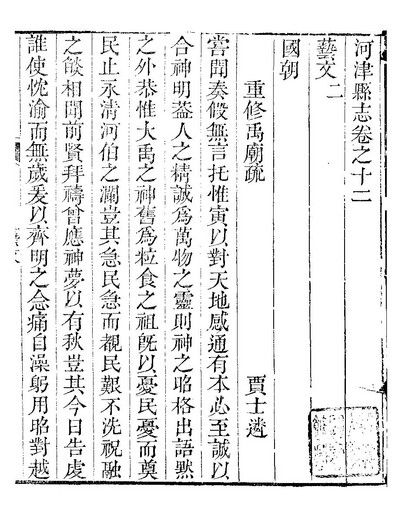 河津縣志卷之十二
藝文二
國朝
重修禹廟疏 賈士遴
嘗聞奏假無言托惟寅以對天地感通有本必至誠以
合神明葢人之精誠為萬物之靈則神之昭格出語默
之外恭惟大禹之神舊為粒食之祖旣以憂民憂而奠
民止永清河伯之瀾豈其急民急而覩民艱不洗祝融
之燄相聞前賢拜禱曾應神夢以有秋豈其今日告虔
誰使忱渝而無歲爰以齊明之念痛自澡躬用昭對越